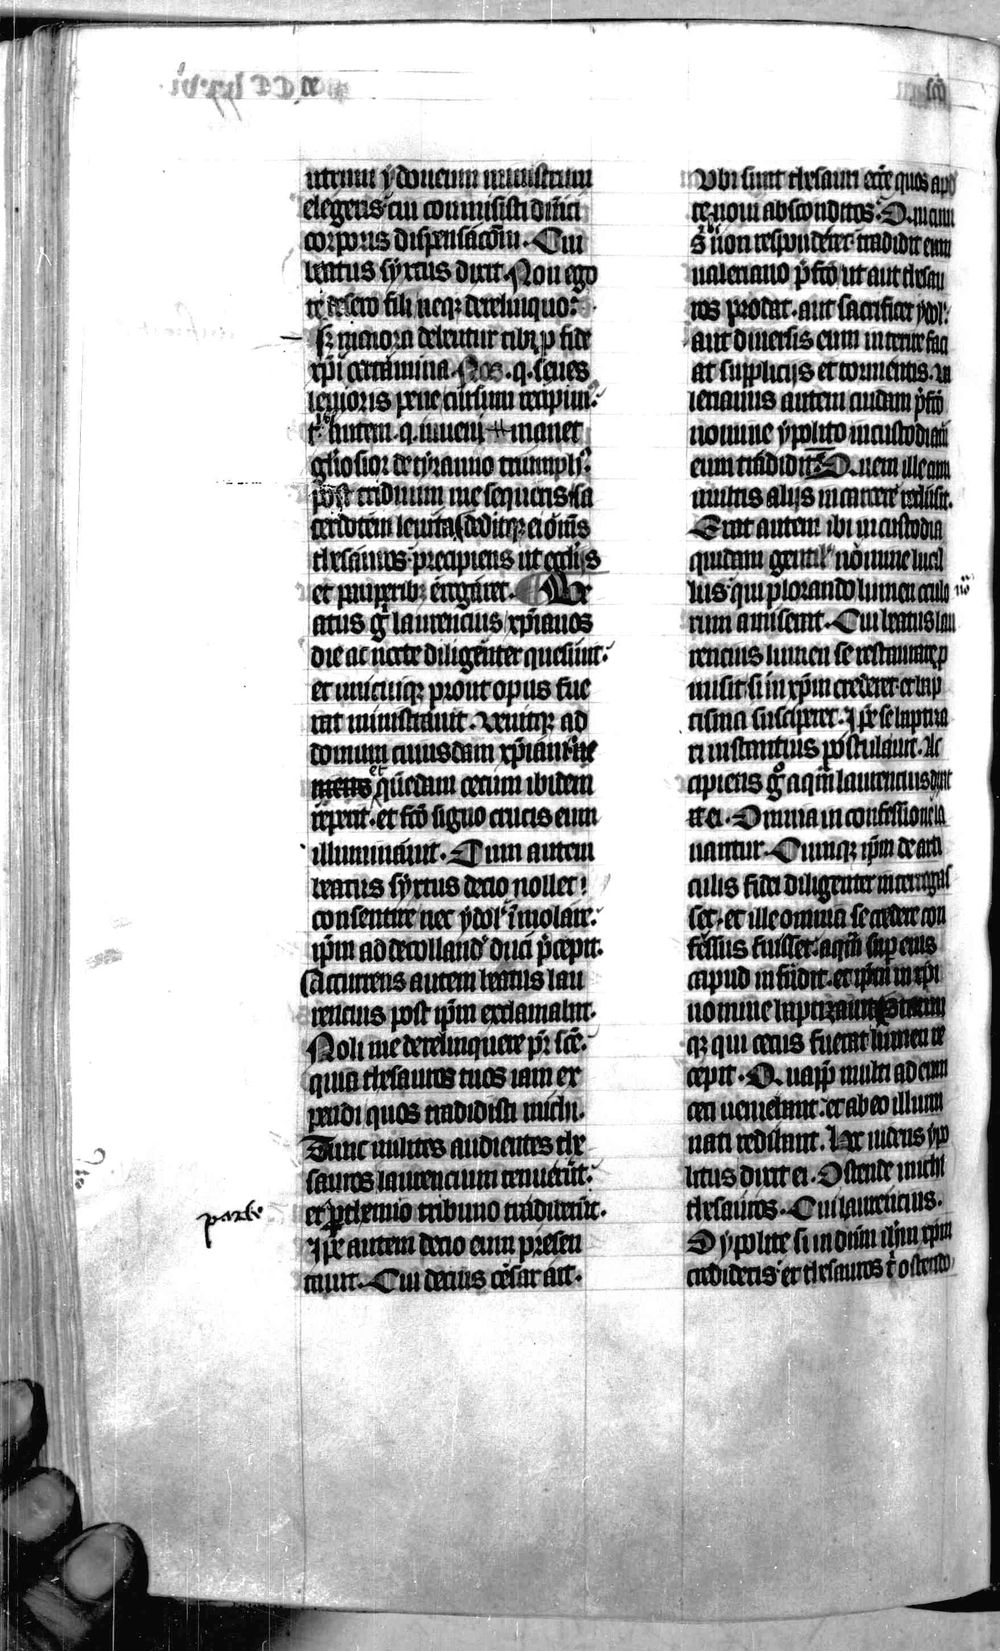 utrum ydoneum ministrum
elegeris cui commisisti dn̄ici
corporis dispensacōm. Cui
beatus syxtus dixit. Non ego
te desero fili neqȝ derelinquo.
sȝ maiora debentur tibi p fide
xp̄i certamina. Nos .q. senes
leuioris pene cursum recipimꝰ.
tᵉ autem .q. iuuenē manet
gl̄iosior de tyranno triumphꝰ.
post triduum me sequeris sa
cerdotem leuita. deditqȝ ei om̄s
thesauros precipiens ut eccl̄ijs
et pauperibȝ erogaret. Be
atus gͦ laurencius xp̄ianos
die ac nocte diligenter quesiuit.
et unicuiqȝ prout opus fue
rat ministrauit. Venitqȝ ad
domum cuiusdam xp̄iani
et quendam cecum ibidem
reperit. et fc̄o signo crucis eum
illuminauit. Dum autem
beatus syxtus decio nollet
consentire nec ydolꝭ īmolare.
ip̄m ad decollandū duci p̄cepit.
Accurrens autem beatus lau
rencius post ip̄m exclamabat.
Noli me derelinquere pr̄ sc̄e.
quia thesauros tuos iam ex
pendi quos tradidisti michi.
Tunc milites audientes the
sauros laurencium tenuerūt.
et ꝑthemio tribuno tradiderūt.
Ipe autem decio eum presen
tauit. Cui decius cesar ait.
parthe
Vbi sunt thesauri ecc̄e quos apd̄
te noui absconditos. Q. cum
sꝫ non responderet tradidit eum
ualeriano p̄fc̄o ut aut thesau
ros prodat. aut sacrificet ydolꝭ.
aut diuersis eum interire faci
at supplicijs et tormentis. Va
lerianus autem cuidam p̄fc̄o
nomine ypolito in custodiam
eum tradidit. Quem ille cum
multis alijs in carcere reclusit.
Erat autem ibi in custodia
quidam gentilꝭ nomine lucil
lus qui plorando lumen oculo
rum amiserat. Cui beatus lau
rencius lumen se restaurare p
misit si in xp̄m crederet et bap
tisma susciperet. Ipe se baptiza
ri instantius postulauit. Ac
cipiens gͦ aquā laurencius dixit
ei. Omnia in confessione la
uantur. Cumqȝ ip̄m de arti
culis fidei diligenter interrogas
set. et ille omnia se credere con
fessus fuisset. aquā sup eius
caput infudit. et ip̄m in xp̄i
nomine baptizauit. Statim
qȝ qui cecus fuerat lumen re
cepit. Quapp̄ multi ad eum
ceci ueniebant. et ab eo illumi
nati redibant. Hec uidens ypo
litus dixit ei. Ostende michi
thesauros. Cui laurencius.
O ypolite si in dn̄m ih̄m xp̄m
credideris et thesauros tͥ ostendo